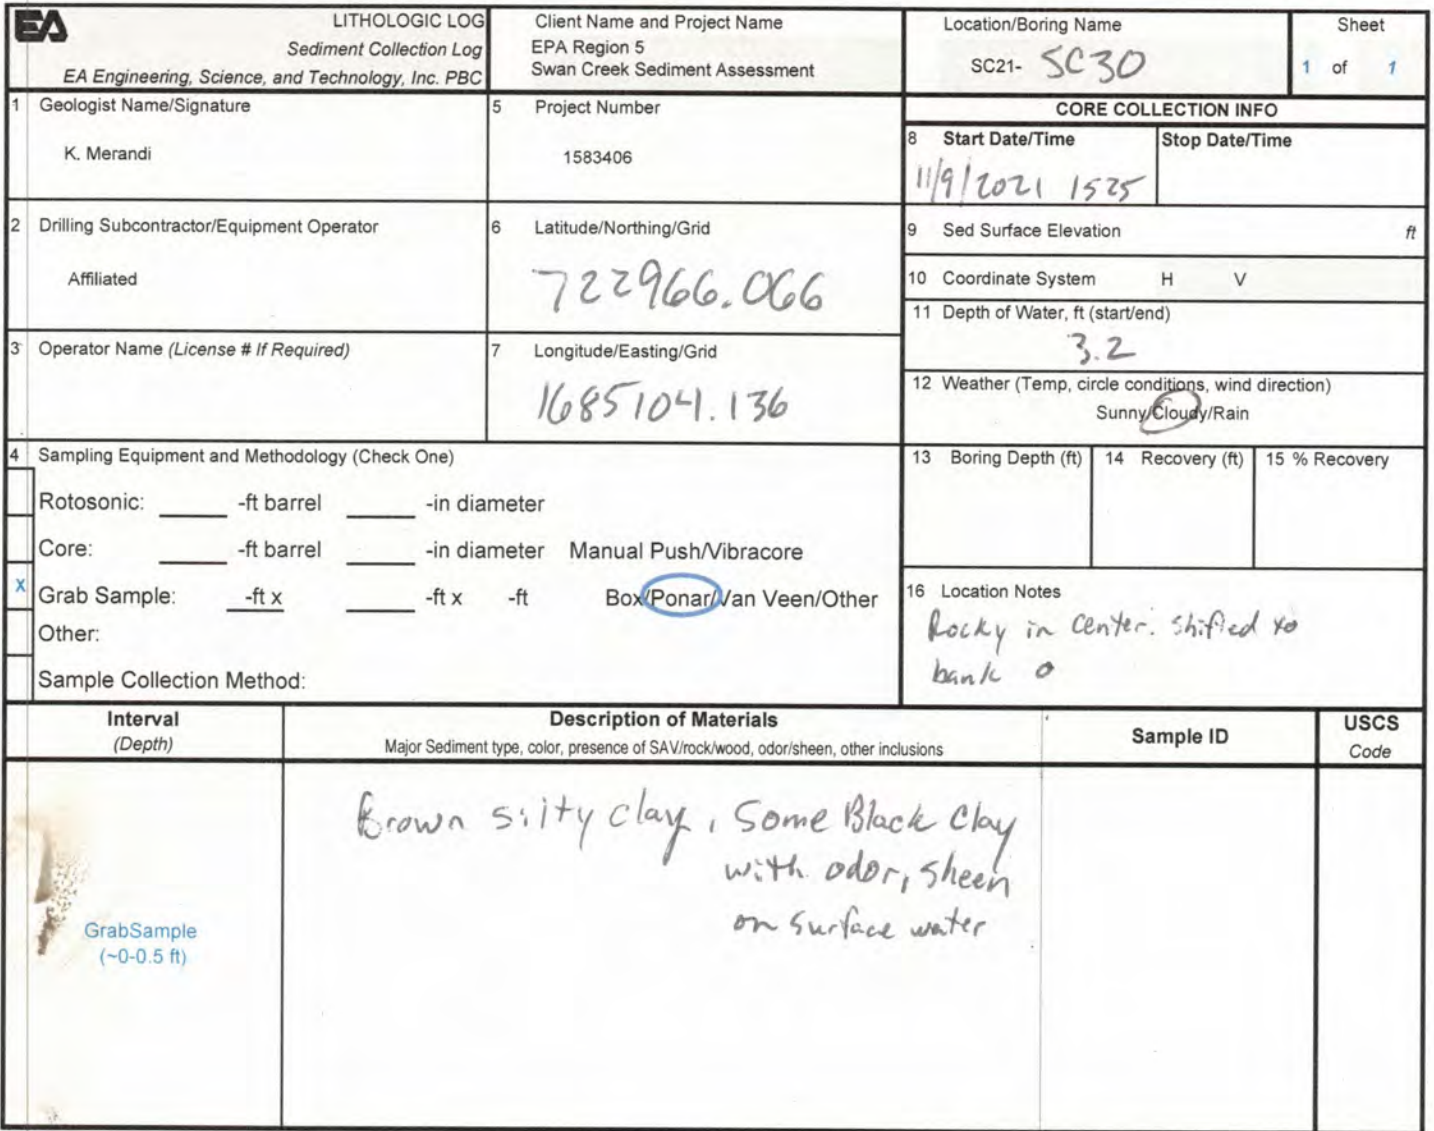 EA
LITHOLOGIC LOG
Sediment Collection Log
EA Engineering, Science, and Technology, Inc. PBC
Client Name and Project Name
EPA Region 5
Swan Creek Sediment Assessment
Location/Boring Name
SC21- SC30
Sheet
1 of 1
1 Geologist Name/Signature
K. Merandi
5 Project Number
1583406
CORE COLLECTION INFO
8 Start Date/Time
11/9/2021 1525
Stop Date/Time
2 Drilling Subcontractor/Equipment Operator
Affiliated
6 Latitude/Northing/Grid
722966.066
9 Sed Surface Elevation ft
10 Coordinate System H V
11 Depth of Water, ft (start/end)
3.2
3 Operator Name (License # If Required)
7 Longitude/Easting/Grid
1685104.136
12 Weather (Temp, circle conditions, wind direction)
Sunny/Cloudy/Rain
4 Sampling Equipment and Methodology (Check One)
Rotosonic: -ft barrel -in diameter
Core: -ft barrel -in diameter Manual Push/Vibracore
X Grab Sample: -ft x -ft x -ft Box/Ponar/Van Veen/Other
Other:
Sample Collection Method:
13 Boring Depth (ft)
14 Recovery (ft)
15 % Recovery
16 Location Notes
Rocky in center. Shifted to
bank
Interval
(Depth)
Description of Materials
Major Sediment type, color, presence of SAV/rock/wood, odor/sheen, other inclusions
Sample ID
USCS
Code
GrabSample
(~0-0.5 ft)
Brown silty clay, Some Black Clay
with odor, sheen
on surface water